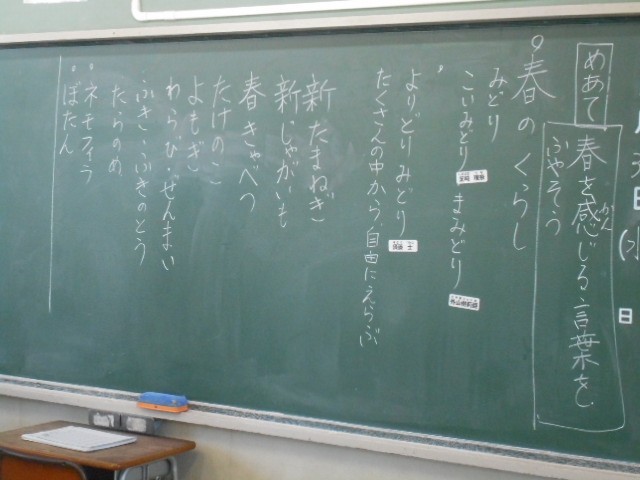 日
めあて
春を感じる言葉を
かん
ふやそう
春のくらし
みどり
こいみどり
まみどり
よりどりみどり
たくさんの中から、自由にえらぶ
新たまねぎ
新じゃがいも
春きゃべつ
たけのこ
よもぎ
わらび、ぜんまい
ふき、ふきのとう
たらのめ
ネモフィラ
ぼたん